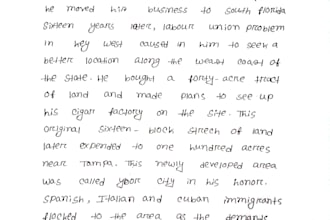 he moved his business to south florida
Sixteen years later, labour union problem
in key west caused in him to seek a
better location along the weast coast of
the State. He bought a forty-acre tract
of land and made plans to see up
his cigar factory on the site. This
original sixteen-block strech of land
later expended to one hundred acres
near Tampa. This newly developed area
was called ybor city in his honor.
Spanish, Italian and cuban immigrants
flocked to the area as the demand